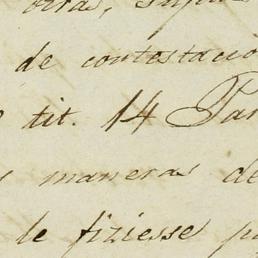 otras,
de contestacio
tit. 14 Par
maneras de
le fiziesse